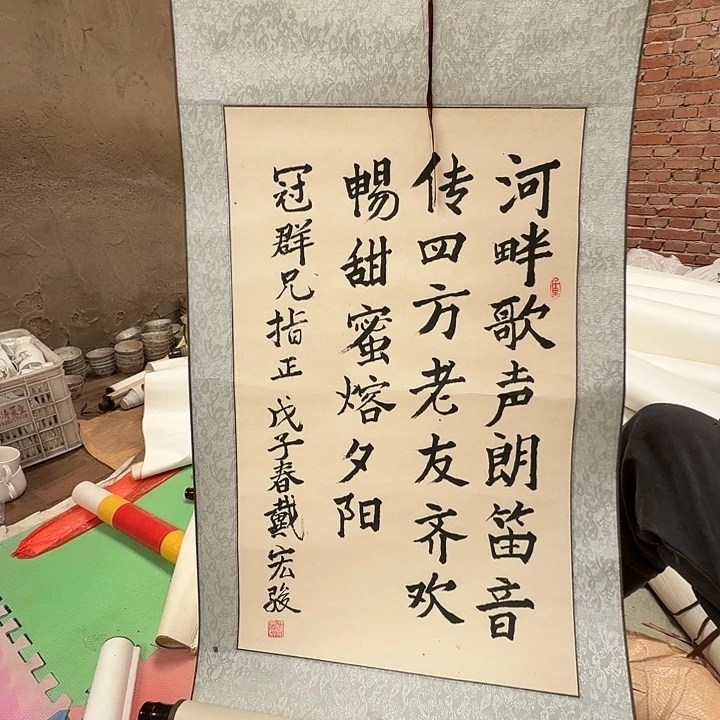 河畔歌声朗笛音
传四方老友齐欢
暢甜蜜熔夕阳
冠群兄指正戊子春戴宏骏